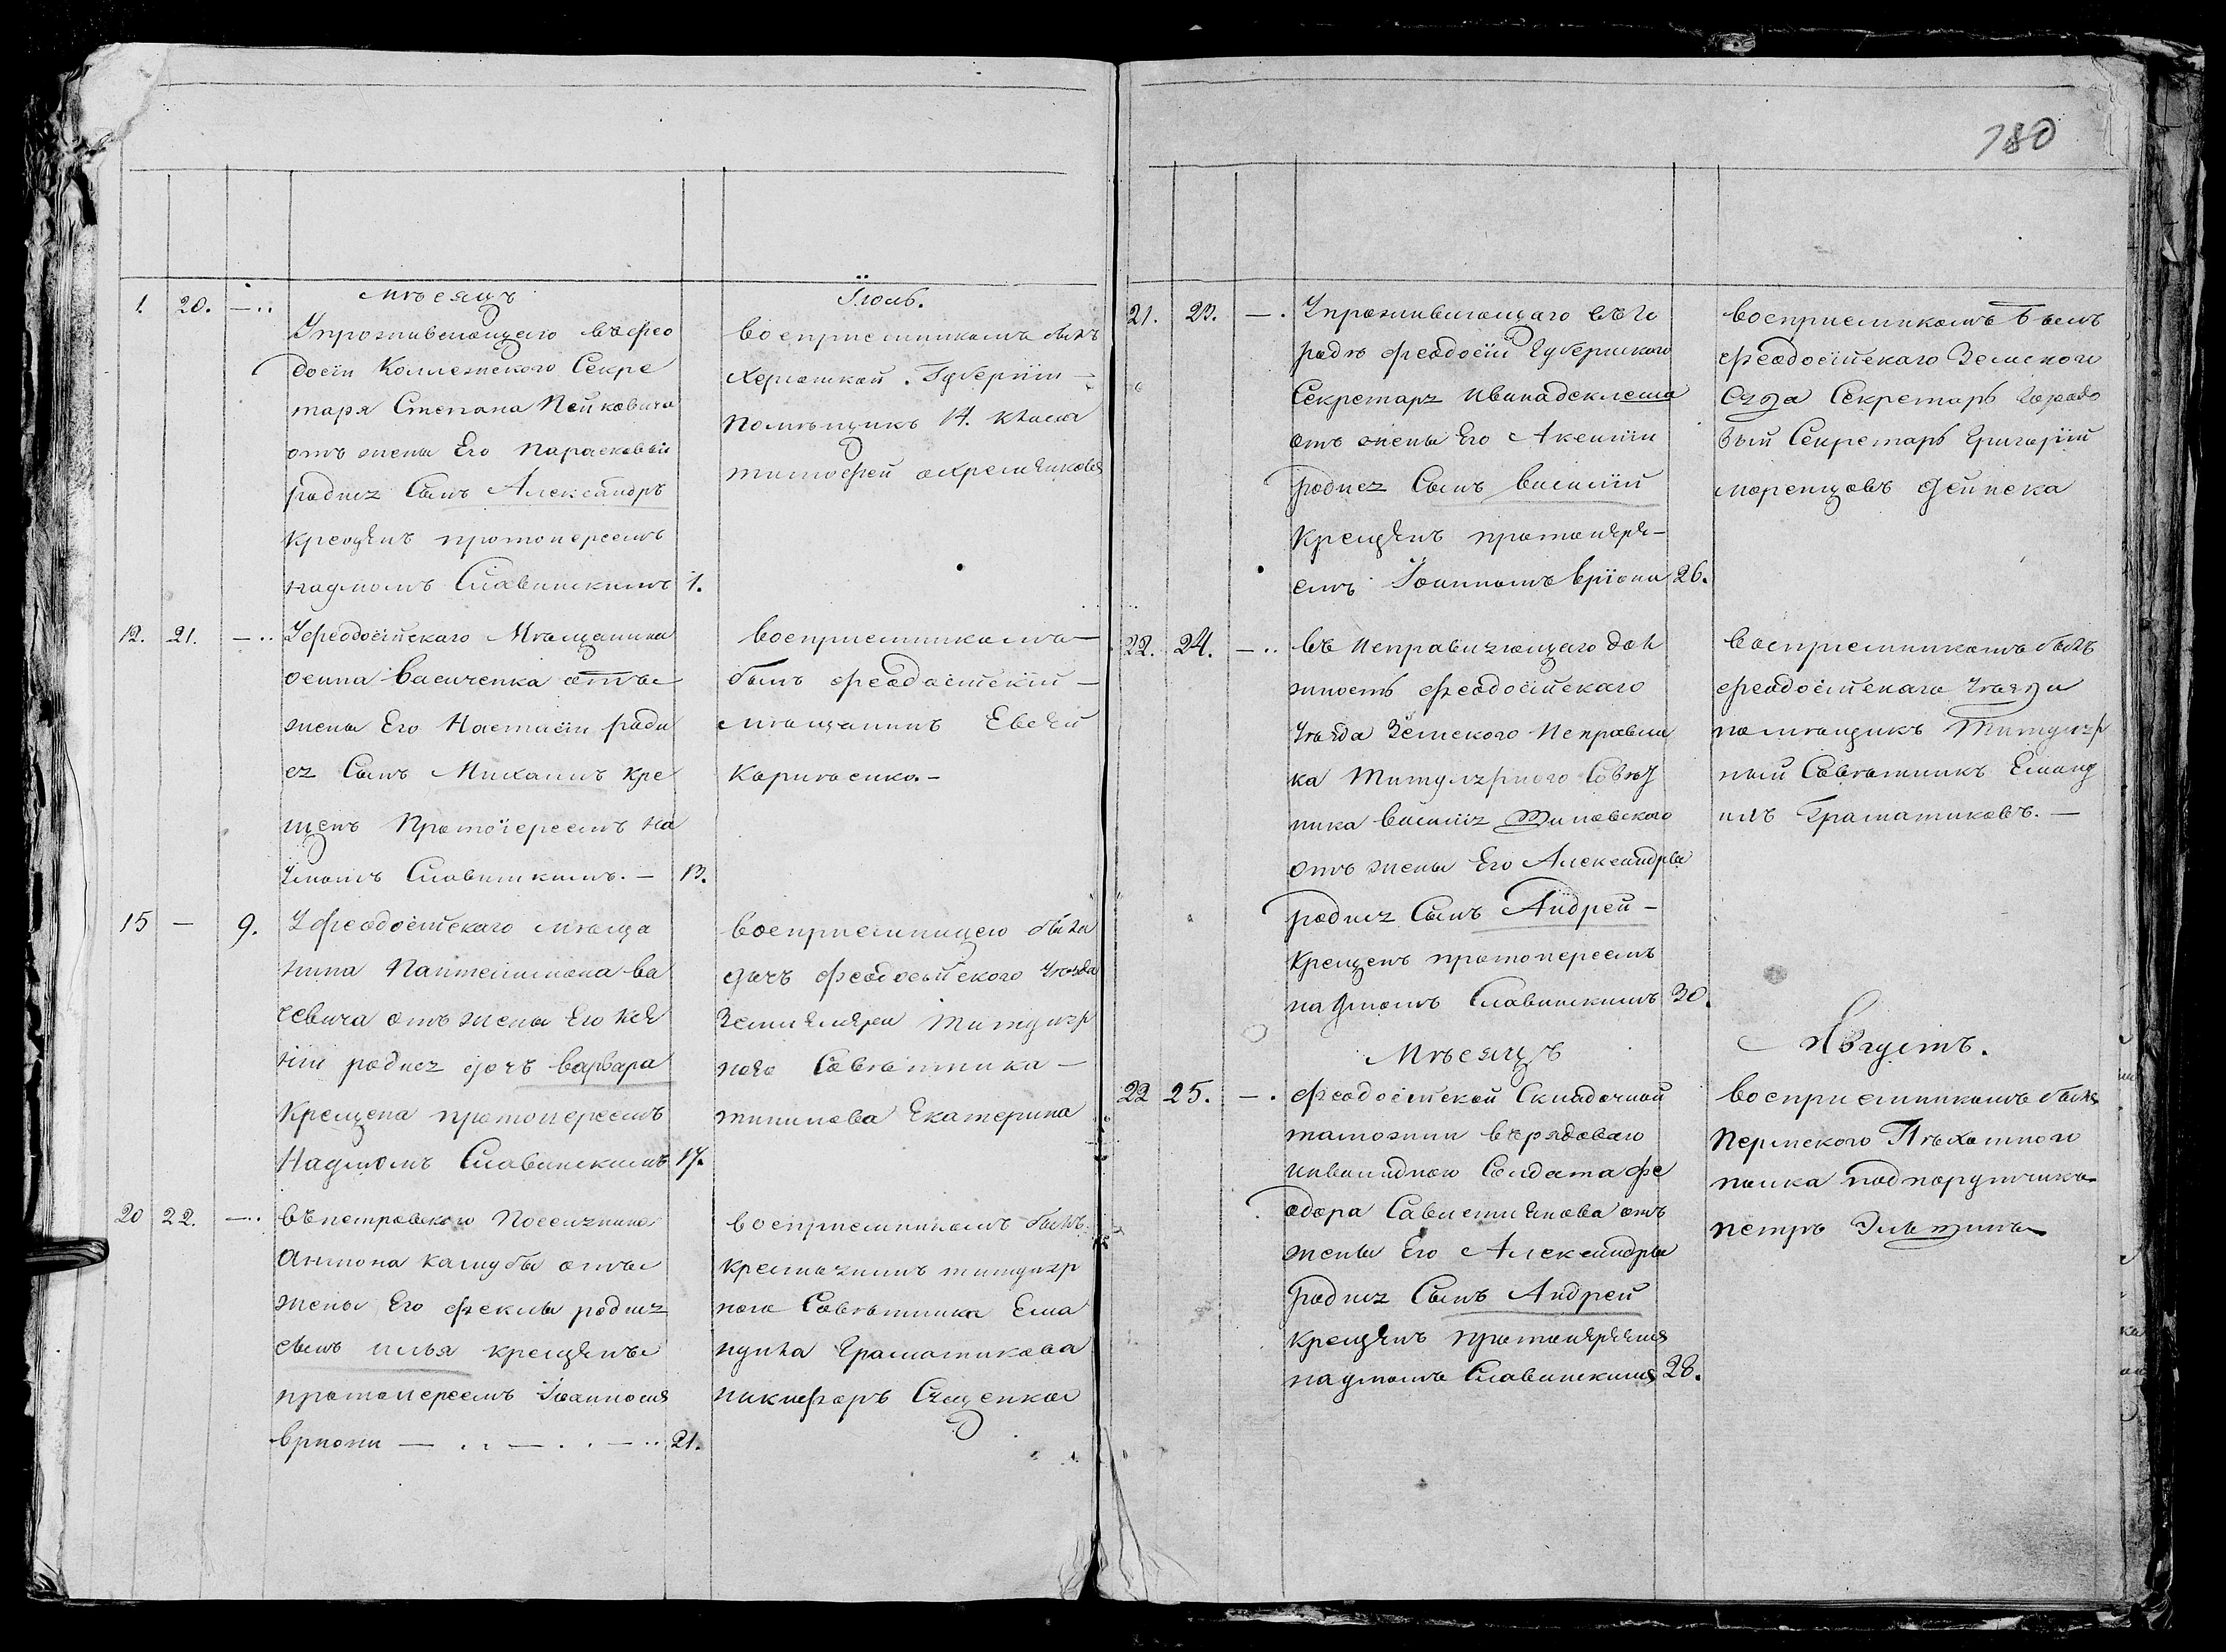 180
мѣсяцъ
Іюль.
1. 20. — ..
Упроживающаго въ Фео
досіи Коллежского Секре
таря Степана Пейковича
отъ жены Его Парасковіи
родися Сынъ Александръ
крещенъ протоиереемъ
наумомъ Славинскимъ 1.
воспріемникомъ былъ
Херсонской Губерніи —
помѣщикъ
тимофей
12. 21. — ..
У феодосійскаго Мѣщанина
осипа Васиченка отъ
жены Его Настасіи роди
ся Сынъ Михаилъ кре
щенъ Протоіереемъ На
умомъ Славинскимъ. — 13.
воспріемникомъ —
былъ феодосійскій —
мѣщанинъ Евсей
15 — 9.
У феодосійскаго мѣща
нина Пантелимона ва
севича отъ жены Его Ксе
ніи родися дочь варвара
крещена протоиереемъ
Наумомъ Славинскимъ 17.
воспріемницею была
дочь феодосійского Уѣзда
Землемѣра титуляр
ного Совѣтника —
Екатерина
20 22. — ..
въ петровского Поселянина
Антона калубы отъ
жены Его феклы родися
сынъ илья крещенъ
протоиереемъ Іоанномъ
вриони — . . — . . — .. 21.
воспріемникомъ былъ
крестьянинъ титуляр
ного Совѣтника Ема
нуила Граматикова
никифоръ Сущенко
21. 23. — .
Упроживающаго въ Го
родѣ феодосіи Губернского
Секретаря Ивана
отъ жены Его Аксиніи
родися Сынъ василій
крещенъ протоиере —
емъ Іоанномъ вріони 26.
воспріемникомъ былъ
феодосійскаго Земского
Суда Секретарь Городо
вый Секретарь Григорій
22. 24. — ..
въ исправляющаго дол
жность феодосійскаго
Уѣзда Земского Исправни
ка титулярного Совѣт
ника василія
отъ жены Его Александры
родися Сынъ Андрей —
крещенъ протоиереемъ
наумомъ Славинскимъ 30.
воспріемникомъ былъ
феодосійскаго Уѣзда
помѣщикъ титуляр
ный Совѣтникъ Еману
илъ Граматиковъ. —
Мѣсяцъ
Августъ.
22 25. — .
феодосійской Складочной
таможни въ рядового
инвалидного Солдата фе
одора отъ
жены Его Александры
родися Сынъ Андрей
крещенъ протоиереемъ
наумомъ Славинскимъ 28.
воспріемникомъ былъ
Пермского Пѣхотного
полка подпорутчикъ
петръ